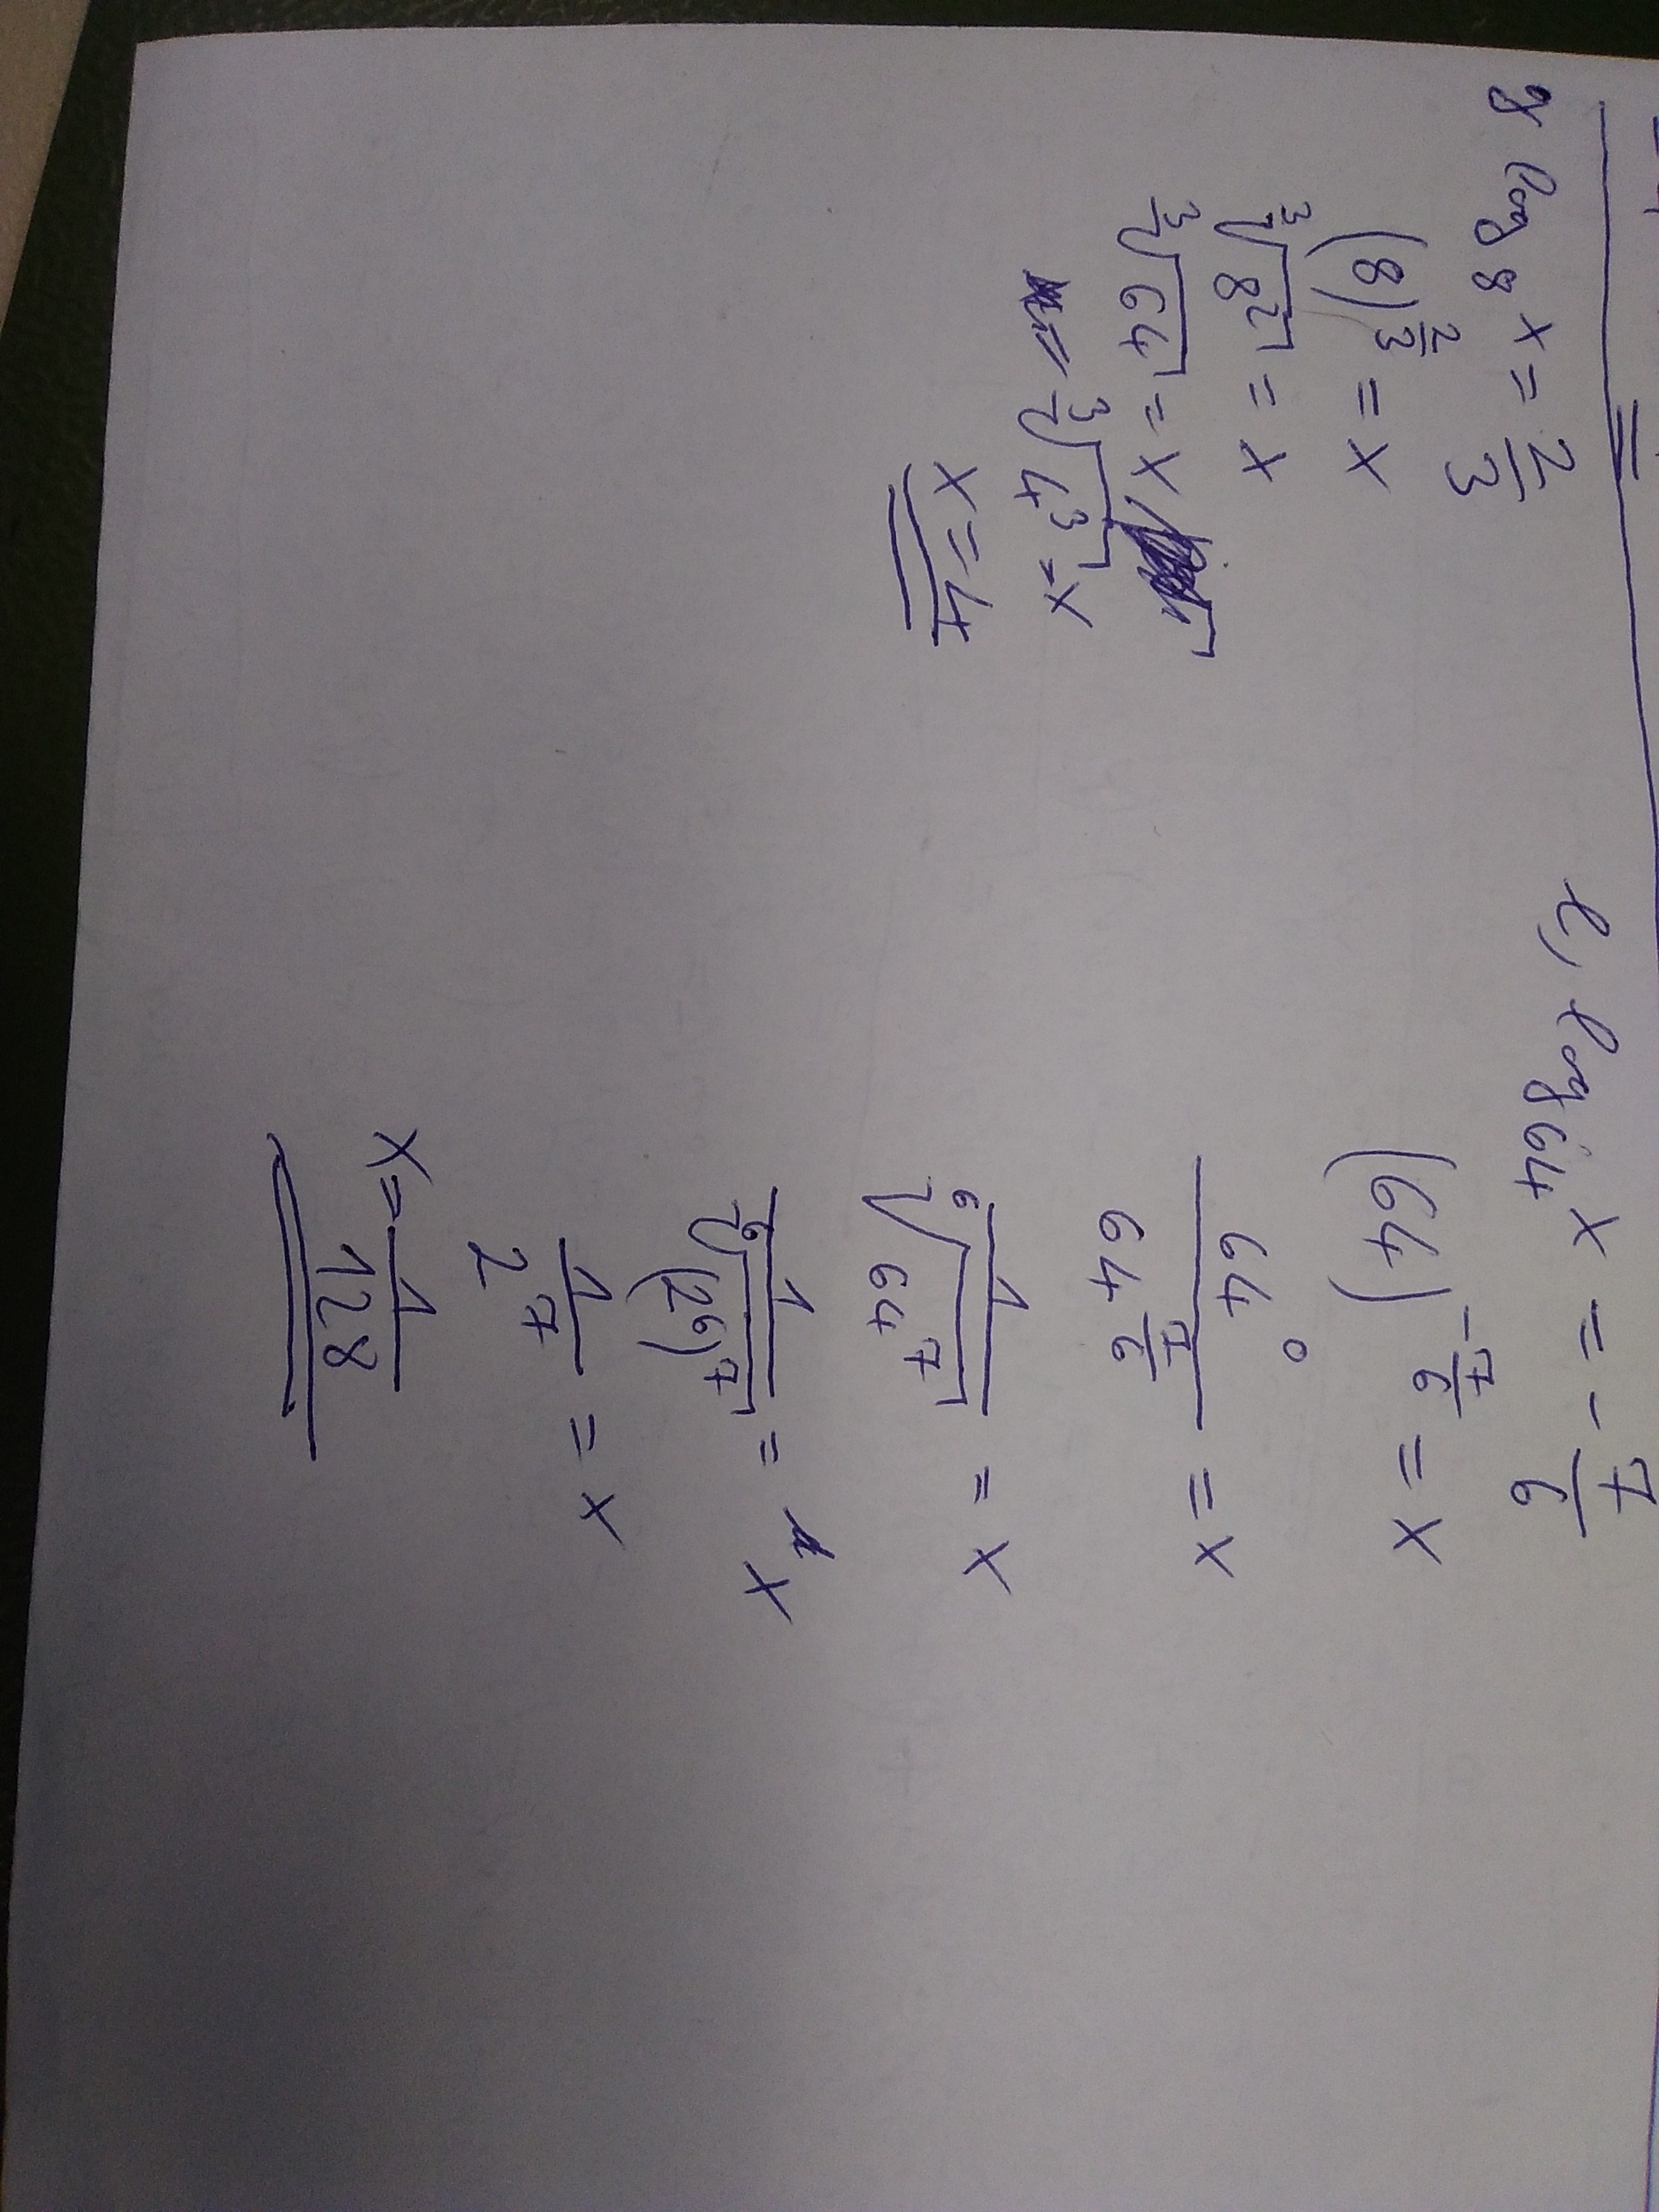 g log₈ x = 2/3
(8)^(2/3) = x
∛8² = x
∛64 = x
∛4³ = x
x = 4
l, log₆₄ x = -7/6
(64)^(-7/6) = x
64⁰ / 64^(7/6) = x
1 / ⁶√64⁷ = x
1 / ⁶√(2⁶)⁷ = x
1 / 2⁷ = x
x = 1/128